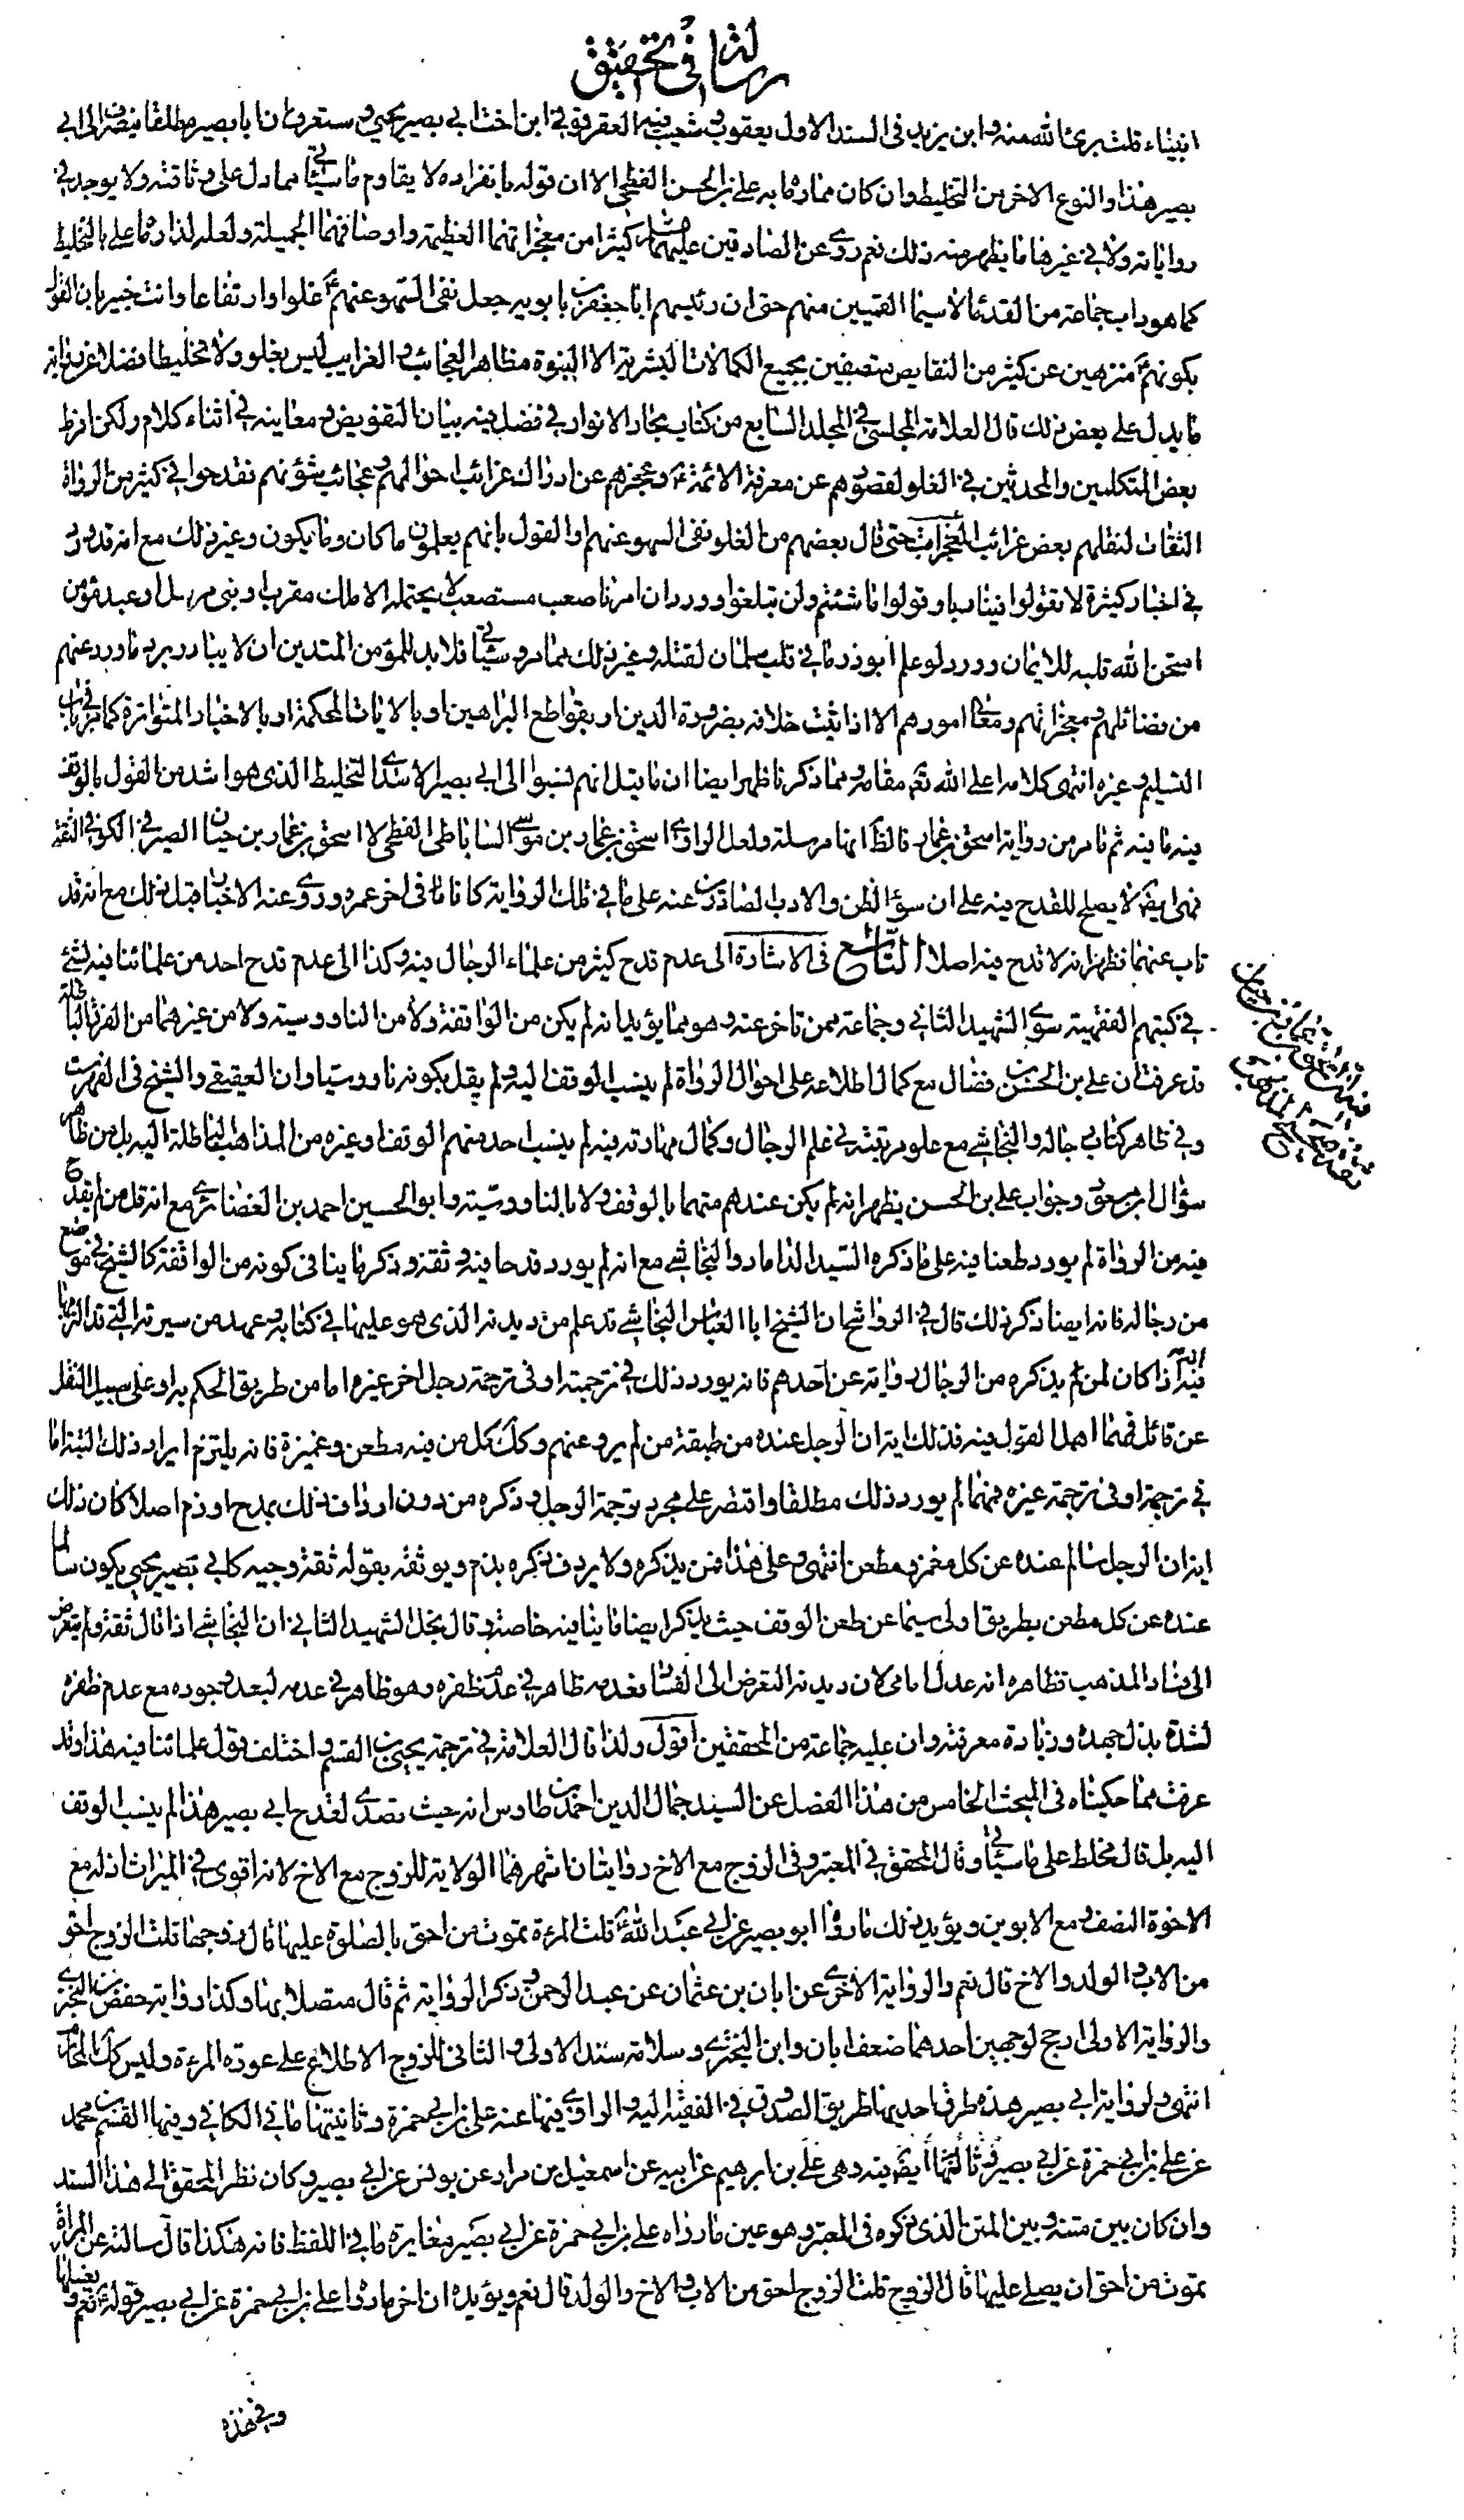 رسالة في تحقيق
انبياء قلت برئ الله منه وابن يزيد في السند الاول يعقوب وشعيب فيه العقرقوفي ابن اخت ابي بصير يحيى وستعرف ان ابا بصير مطلقا ينصرف الى ابي
بصير هذا والنوع الاخر من التخليط وان كان مما رماه به علي بن الحسن الفطحي الا ان قوله بانفراده لا يقاوم ما سيأتي مما دل على وثاقته ولا يوجد في
رواياته ولا في غيرها ما يظهر منه ذلك نعم روى عن الصادقين عليهما السلام كثيرا من معجزاتهما العظيمة واوصافهما الجميلة ولعله لذا رماه علي بالتخليط
كما هو داب جماعة من القدماء لاسيما القميين منهم حتى ان رئيسهم ابا جعفر بن بابويه جعل نفي السهو عنهم غلوا وارتفاعا وانت خبير بان القول
بكونهم منزهين عن كثير من النقايص متصفين بجميع الكمالات البشرية الا النبوة مظاهر العجائب والغرايب ليس بغلو ولا تخليط فضلا عن رواية
ما يدل على بعض ذلك قال العلامة المجلسي في المجلد السابع من كتاب بحار الانوار في فضل فيه بيان التفويض ومعانيه في اثناء كلام ولكن افرط
بعض المتكلمين والمحدثين في الغلو لقصورهم عن معرفة الائمة وعجزهم عن ادراك غرائب احوالهم وعجائب شؤنهم فقدحوا في كثير من الرواة
الثقات لنقلهم بعض غرائب المعجزات حتى قال بعضهم من الغلو نفي السهو عنهم او القول بانهم يعلمون ما كان وما يكون وغير ذلك مع انه قد ورد
في اخبار كثيرة لا تقولوا فينا ربا وقولوا ما شئتم ولن تبلغوا وورد ان امرنا صعب مستصعب لا يحتمله الا ملك مقرب او نبي مرسل او عبد مؤمن
امتحن الله قلبه للايمان وورد لو علم ابوذر ما في قلب سلمان لقتله وغير ذلك مما مر وسيأتي فلا بد للمؤمن المتدين ان لا يبادر برد ما ورد عنهم
من فضائلهم ومعجزاتهم ومعالي امورهم الا اذا ثبت خلافه بضرورة الدين او بقواطع البراهين او بالايات المحكمة او بالاخبار المتواترة كما مر في باب
التسليم وغيره انتهى كلامه اعلى الله تع مقامه ومما ذكرنا ظهر ايضا ان ما قيل انهم نسبوا الى ابي بصير الاسدي التخليط الذي هو اشد من القول بالوقف
فيه ما فيه ثم ما مر من رواية اسحق بن عمار فالظ انها مرسلة ولعل الراوي اسحق بن عمار بن موسى الساباطي الفطحي لا اسحق بن عمار بن حيان الصيرفي الكوفي الثقة
فهى ايض لا يصلح للقدح فيه على ان سوء الظن والادب الصادرين عنه على ما في تلك الرواية كانا ما في اخر عمره وروى عنه الاخبار قبل ذلك مع انه قد
تاب عنهما فظهر انه لا قدح فيه اصلا التاسع في الاشارة الى عدم قدح كثير من علماء الرجال فيه وكذا الى عدم قدح احد من علمائنا فيه لشئ
في كتبهم الفقهية سوى الشهيد الثاني وجماعة ممن تاخر عنه وهو مما يؤيد انه لم يكن من الواقفة ولا من الناووسية ولا من غيرهما من الفرق الباطلة
قد عرفت ان علي بن الحسن بن فضال مع كمال اطلاعه على احوال الرواة لم ينسب الوقف اليه ولم يقل بكونه ناووسيا وان العقيقي والشيخ في الفهرست
وفي ظاهر كتاب رجاله والنجاشي مع علو مرتبته في علم الرجال وكمال مهارته فيه لم ينسب احد منهم الوقف او غيره من المذاهب الباطلة اليه بل من ظاهر
سؤال ابن مسعود وجواب علي بن الحسن يظهر انه لم يكن عندهم متهما بالوقف ولا بالناووسية وابو الحسين احمد بن الغضائري مع انه قل من لم يقدح
فيه من الرواة لم يورد طعنا فيه على ما ذكره السيد الداماد والنجاشي مع انه لم يورد قدحا فيه وثقه وذكر ما ينافي كونه من الواقفة كالشيخ في موضع
من رجاله فانه ايضا ذكر ذلك قال في الرواشح ان الشيخ ابا العباس النجاشي قد علم من ديدنه الذي هو عليه في كتابه وعهد من سيرته التي قد التزمها
فيه انه اذا كان لمن لم يذكره من الرجال رواية عن احدهم فانه يورد ذلك في ترجمته او في ترجمة رجل اخر غيره اما من طريق الحكم به او على سبيل النقل
عن قائل فمهما اهمل القول فيه فذلك اية ان الرجل عنده من طبقة من لم يرو عنهم وكك كل من فيه مطعن وغميزة فانه يلتزم ايراد ذلك البتة اما
في ترجمته او في ترجمة غيره فمهما لم يورد ذلك مطلقا واقتصر على مجرد ترجمة الرجل وذكره من دون ارداف ذلك بمدح او ذم اصلا كان ذلك
اية ان الرجل سالم عنده عن كل مغمز ومطعن انتهى وعلى هذا فمن يذكره ولا يردف ذكره بذم ويوثقه بقوله ثقة وجيه كابي بصير يحيى يكون سالما
عنده عن كل مطعن بطريق اولى سيما عن طعن الوقف حيث يذكر ايضا ما ينافيه خاصة وقال نجل الشهيد الثاني ان النجاشي اذا قال ثقة ولم يتعرض
الى فساد المذهب فظاهره انه عدل امامي لان ديدنه التعرض الى الفساد فعدمه ظاهر في عدم ظفره وهو ظاهر في عدمه لبعد وجوده مع عدم ظفره
لشدة بذل جهده وزيادة معرفته وان عليه جماعة من المحققين اقول ولذا قال العلامة في ترجمة يحيى بن القسم واختلف قول علمائنا فيه هذا وقد
عرفت مما حكيناه في المبحث الخامس من هذا الفصل عن السيد جمال الدين احمد بن طاوس انه حيث تصدى لقدح ابي بصير هذا لم ينسب الوقف
اليه بل قال مخلط على ما سيأتي وقال المحقق في المعتبر وفي الزوج مع الاخ روايتان اشهرهما الولاية للزوج مع الاخ لانه اقوى في الميراث اذ له مع
الاخوة النصف ومع الابوين ويؤيد ذلك ما رواه ابو بصير عن ابي عبد الله قلت المرءة تموت من احق بالصلوة عليها قال زوجها قلت الزوج احق
من الاب والولد والاخ قال نعم والرواية الاخرى عن ابان بن عثمان عن عبد الرحمن وذكر الرواية ثم قال متصلا بها وكذا رواية حفص بن البختري
والرواية الاولى ارجح لوجهين احدهما ضعف ابان وابن البختري وسلامة سند الاولى والثاني للزوج الاطلاع على عورة المرءة وليس كك المحارم
انتهى ولرواية ابي بصير هذه طرق احديها طريق الصدوق في الفقيه اليه والراوي فيها عنه علي بن ابي حمزة وثانيتها ما في الكافي وفيها القسم بن محمد
عن علي بن ابي حمزة عن ابي بصير وثالثها ايض فيه وهى علي بن ابرهيم عن ابيه عن اسمعيل بن مرار عن يونس عن ابي بصير وكان نظر المحقق الى هذا السند
وان كان بين متنه وبين المتن الذي ذكره في المعتبر وهو عين ما رواه علي بن ابي حمزة عن ابي بصير مغايرة ما في اللفظ فانه هكذا قال سالته عن المرأة
تموت من احق ان يصلي عليها قال الزوج قلت الزوج احق من الاب والاخ والولد قال نعم ويؤيده ان اخر ما رواه علي بن ابي حمزة عن ابي بصير قوله نعم ويغسلها
وفي هذه